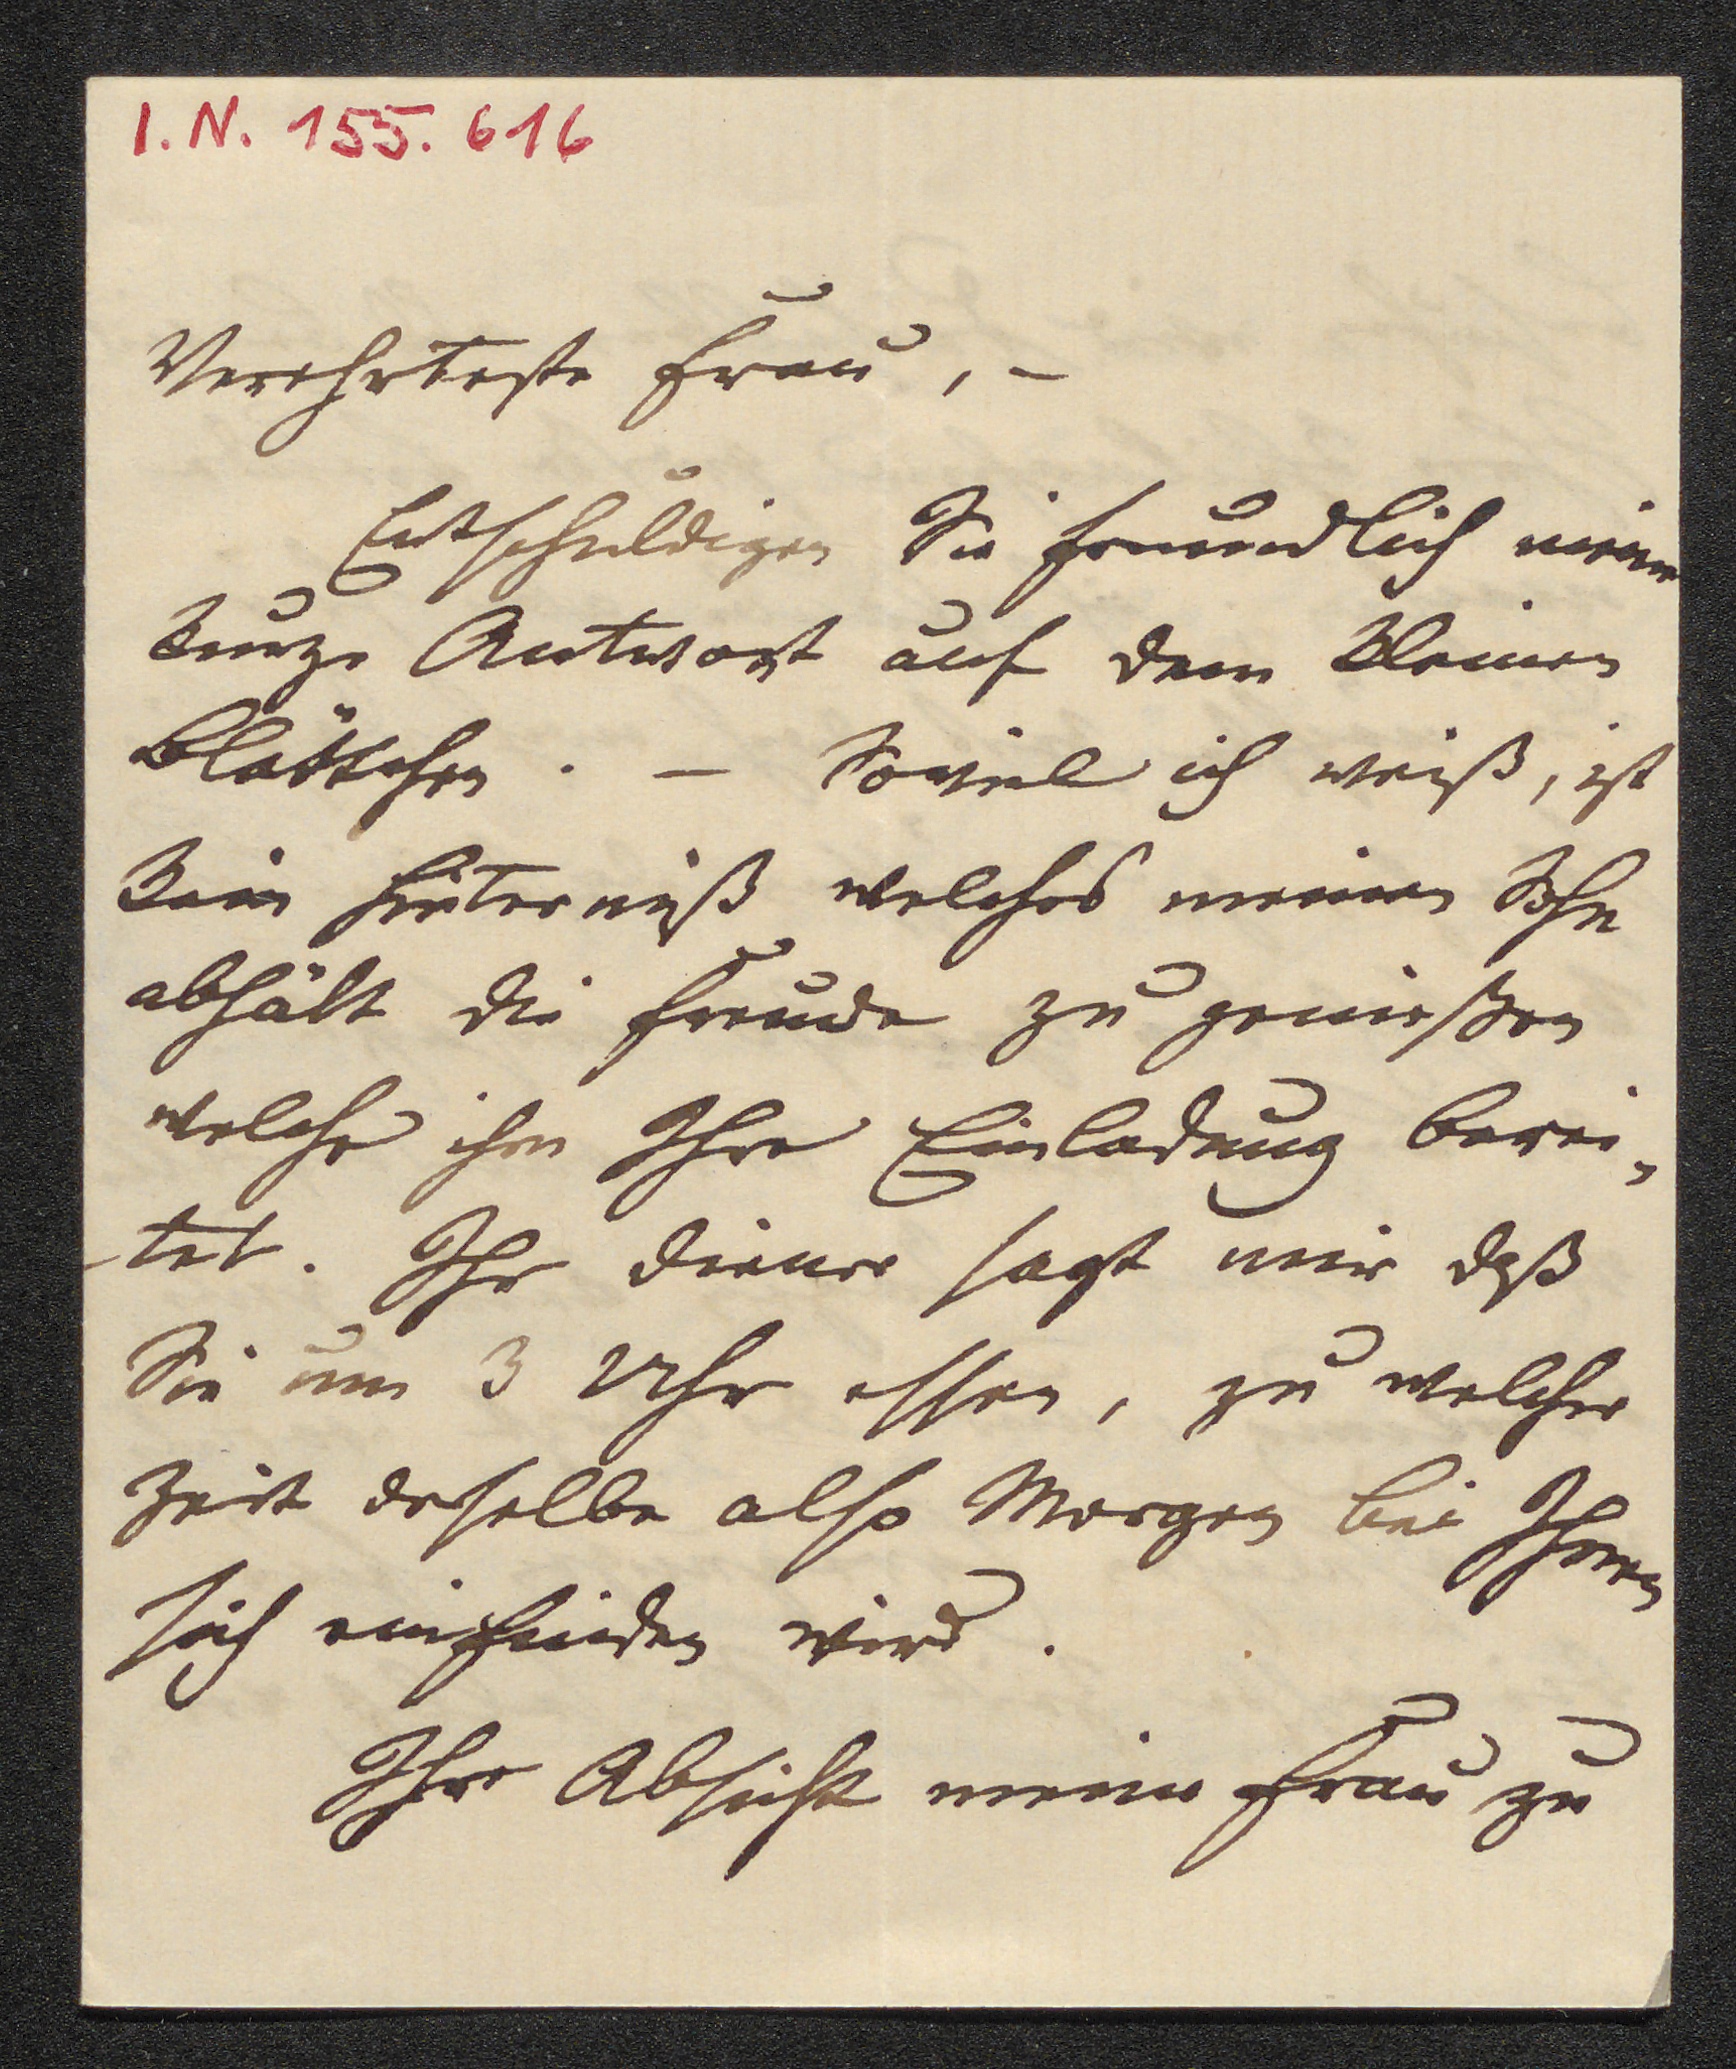 I.N. 155.616
Verehrteste Frau, –
Entschuldigen Sie freundlich meine
kurze Antwort auf dem kleinen
Blättchen. – Soviel ich weiß, ist
kein Hinterniß welches meinen Sohn
abhält die Freude zu genießen
welche ihm Ihre Einladung berei-
tet. Ihr Diener sagt mir daß
Sie um 3 Uhr essen, zu welcher
Zeit derselbe also Morgen bei Ihnen
sich einfinden wird.
Ihre Absicht meine Frau zu